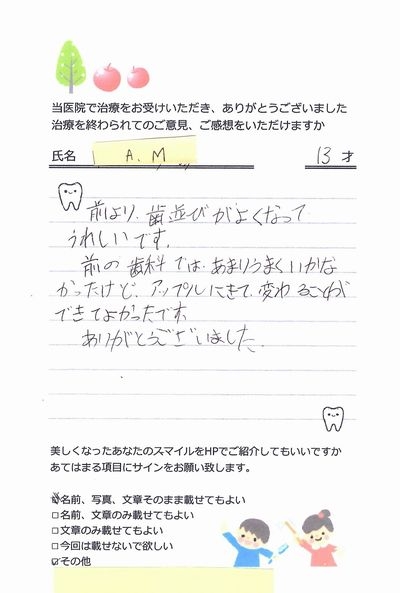 当医院で治療をお受けいただき、ありがとうございました
治療を終わられてのご意見、ご感想をいただけますか
氏名 A.M 13 才
前より、歯並びがよくなって
うれしいです。
前の歯科では、あまりうまくいかな
かったけど、アップルにきて、変わることが
できてよかったです。
ありがとうございました。
美しくなったあなたのスマイルをHPでご紹介してもいいですか
あてはまる項目にサインをお願い致します。
☑名前、写真、文章そのまま載せてもよい
□名前、文章のみ載せてもよい
□文章のみ載せてもよい
□今回は載せないで欲しい
☑その他